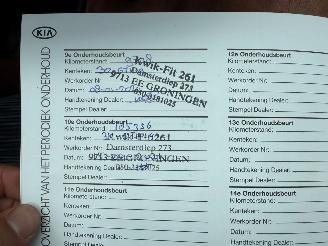 KIA
OVERZICHT VAN HET PERIODIEK ONDERHOUD
9e Onderhoudsbeurt
Kilometerstand:
Kenteken:
Werkorder Nr:
Datum:
Handtekening Dealer:
Stempel Dealer:
Kwik-Fit 261
Damsterdiep 273
9713 EE GRONINGEN
10e Onderhoudsbeurt
Kilometerstand: 105336
Kenteken:
Werkorder Nr: Damsterdiep 273
Datum: 9713 EE GRONINGEN
Handtekening Dealer:
Stempel Dealer:
11e Onderhoudsbeurt
Kilometerstand:
Kenteken:
Werkorder Nr:
Datum:
Handtekening Dealer:
12e Onderhoudsbeurt
Kilometerstand:
Kenteken:
Werkorder Nr:
Datum:
Handtekening Dealer:
Stempel Dealer:
13e Onderhoudsbeurt
Kilometerstand:
Kenteken:
Werkorder Nr:
Datum:
Handtekening Dealer:
Stempel Dealer:
14e Onderhoudsbeurt
Kilometerstand:
Kenteken:
Werkorder Nr:
Datum:
Handtekening Dealer: